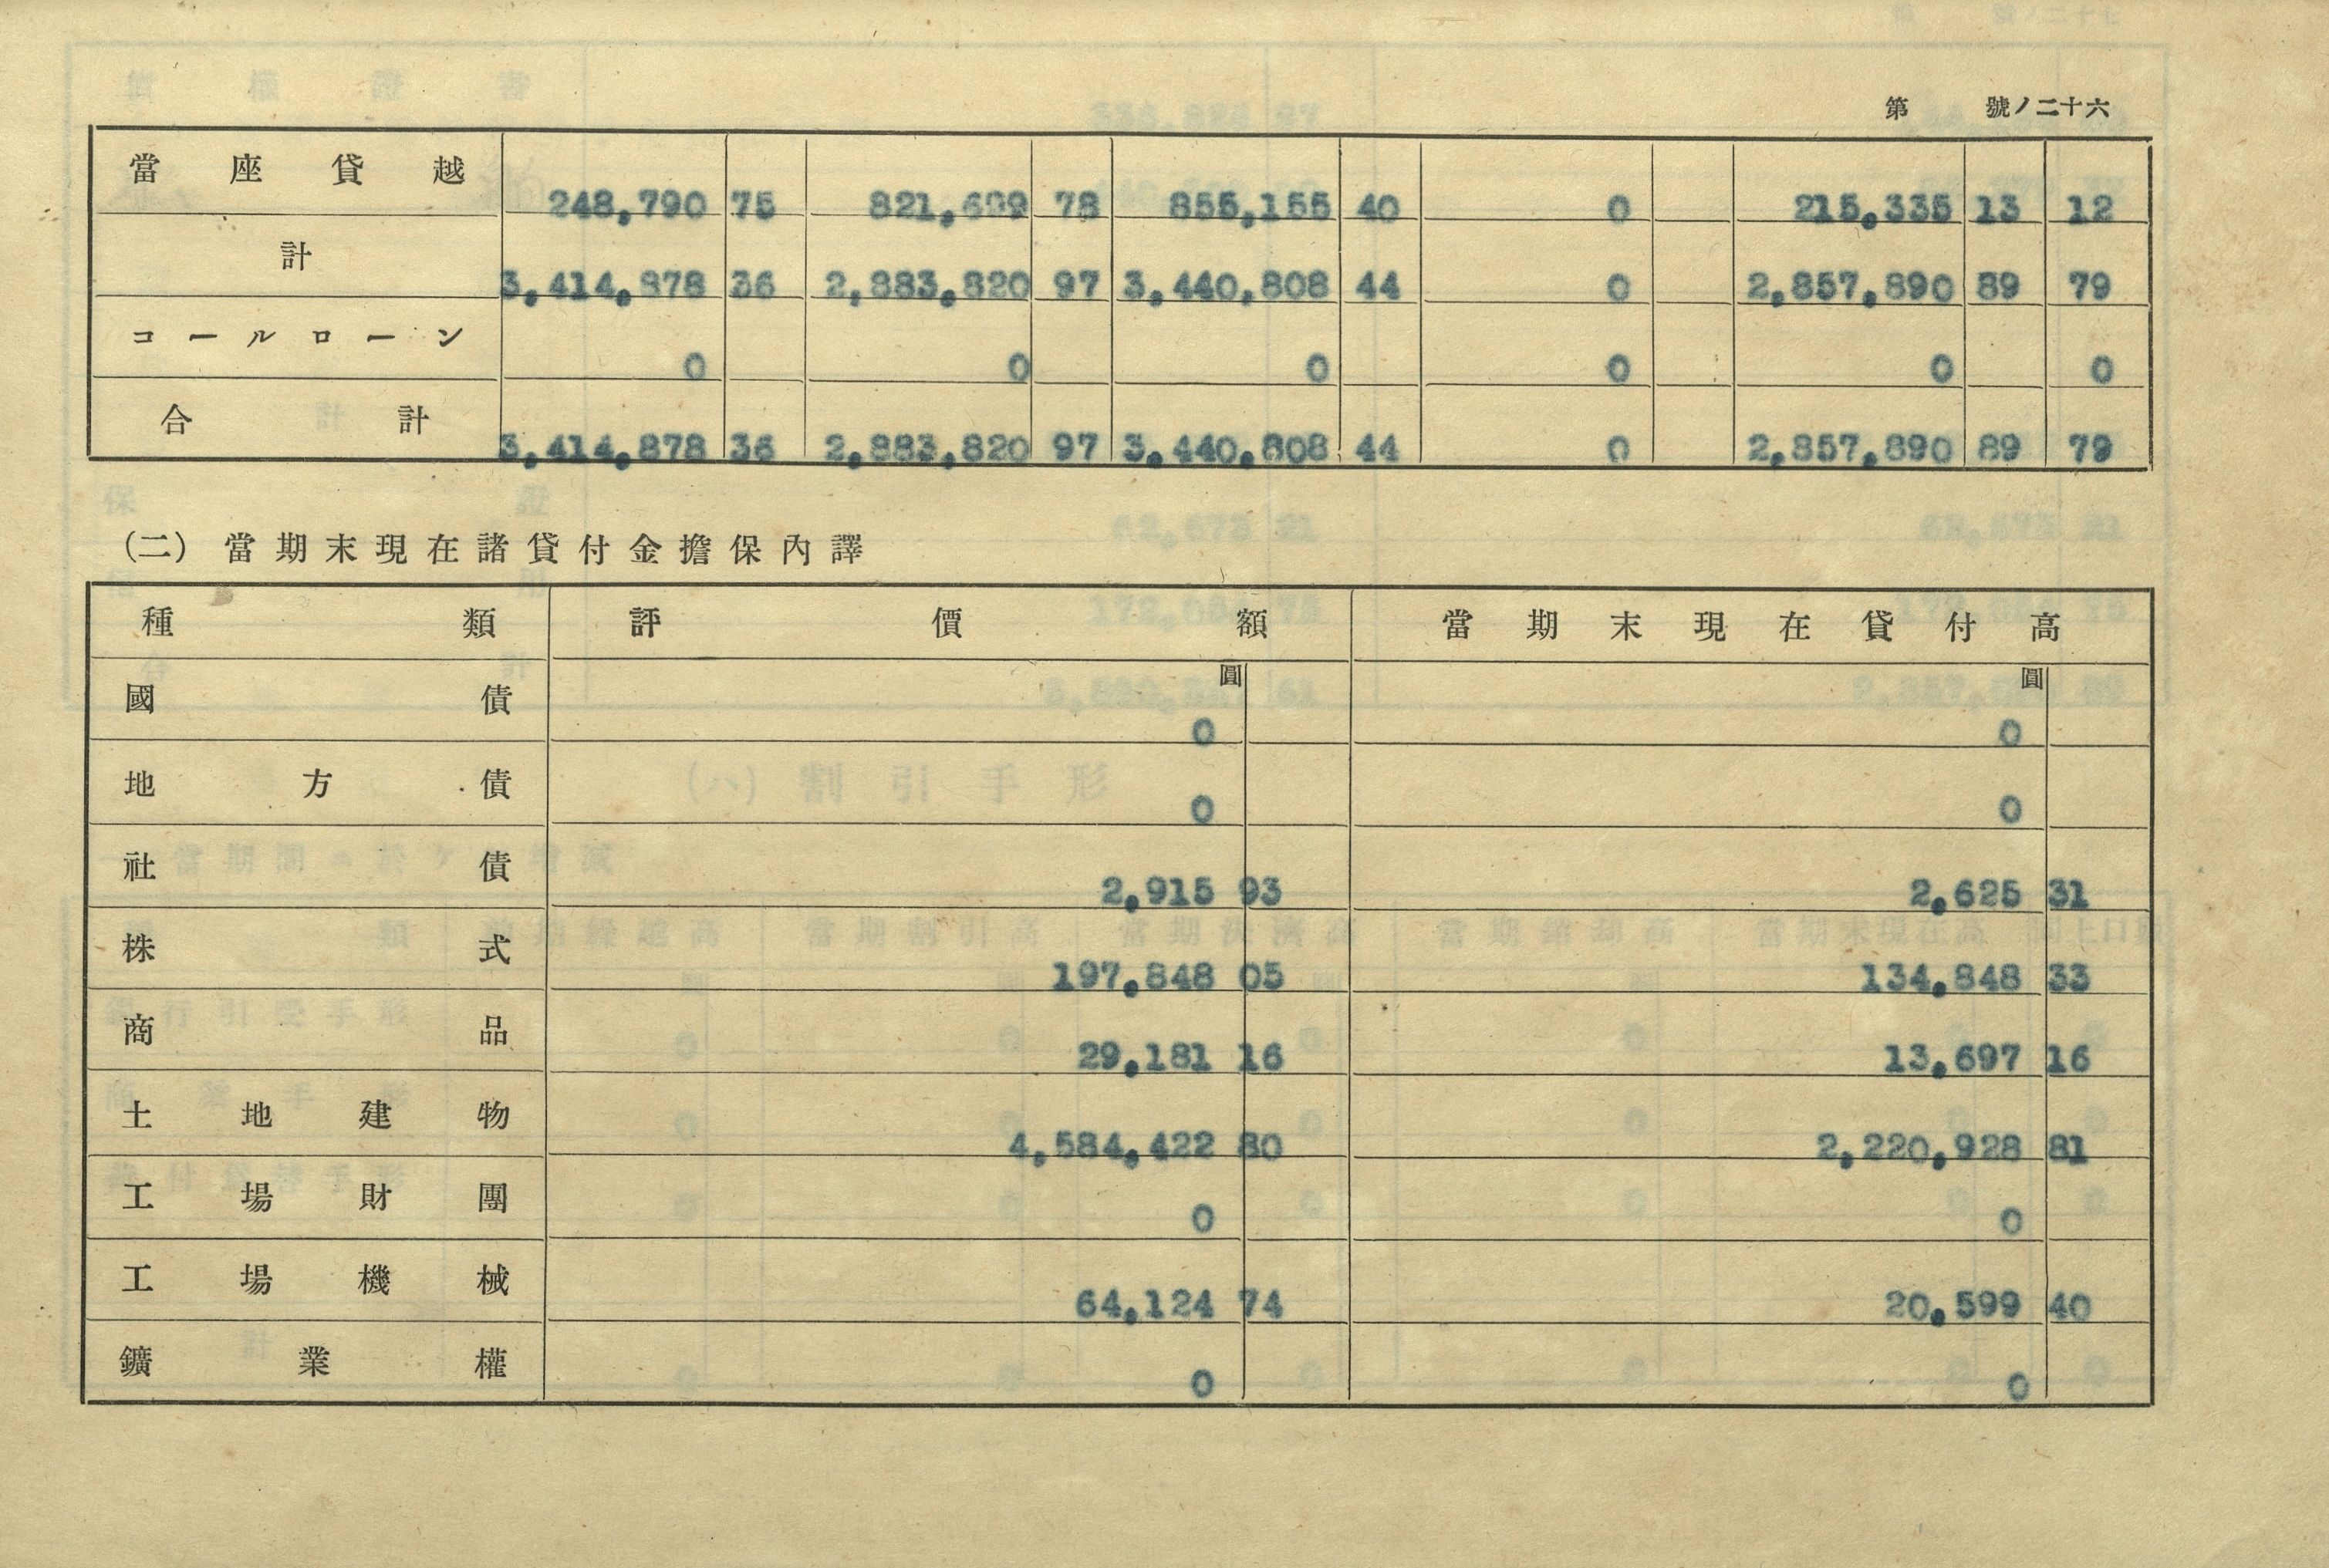 第 號ノ二十六
當座貸越 248,790 75 821,699 78 855,155 40 0 215,335 13 12
計 3,414,878 36 2,883,820 97 3,440,808 44 0 2,857,890 89 79
コールローン 0 0 0 0 0 0
合計 3,414,878 36 2,883,820 97 3,440,808 44 0 2,857,890 89 79
(二) 當期末現在諸貸付金擔保內譯
種類 評價額 當期末現在貸付高
圓 圓
國債 0 0
地方債 0 0
社債 2,915 93 2,625 31
株式 197,848 05 134,848 33
商品 29,181 16 13,697 16
土地建物 4,584,422 80 2,220,928 81
工場財團 0 0
工場機械 64,124 74 20,599 40
鑛業權 0 0